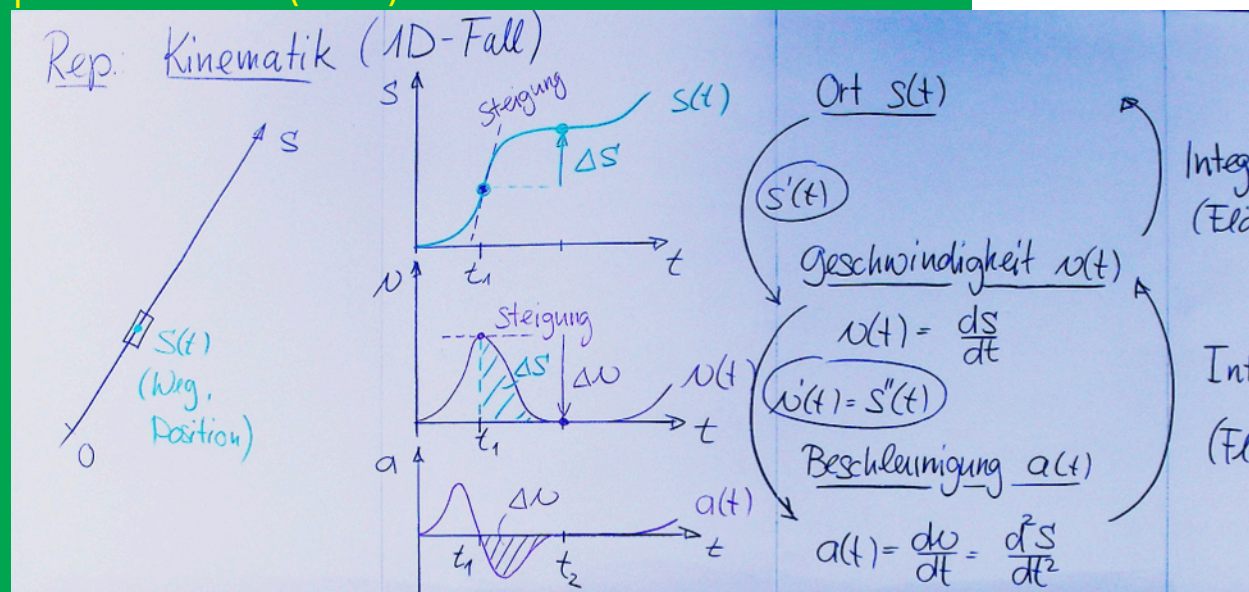 Rep. Kinematik (1D-Fall)
S
S(t)
(Weg,
Position)
0
S
Steigung
S(t)
ΔS
t₁
t
v
Steigung
ΔS
Δv
v(t)
t₁
t
a
Δv
a(t)
t₁
t₂
t
Ort S(t)
s'(t)
Geschwindigkeit v(t)
v(t) = ds/dt
v'(t) = s''(t)
Beschleunigung a(t)
a(t) = dv/dt = d²s/dt²
Integ
Int